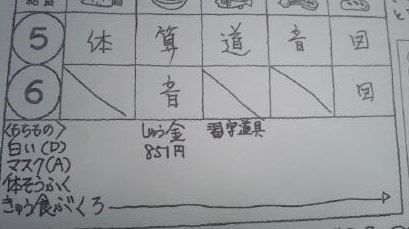 給食
5 体 算 道 音 図
6 音 図
<もちもの>
白い(D)
マスク(A)
体そうふく
きゅう食ぶくろ
しゅう金
851円
習字道具
と